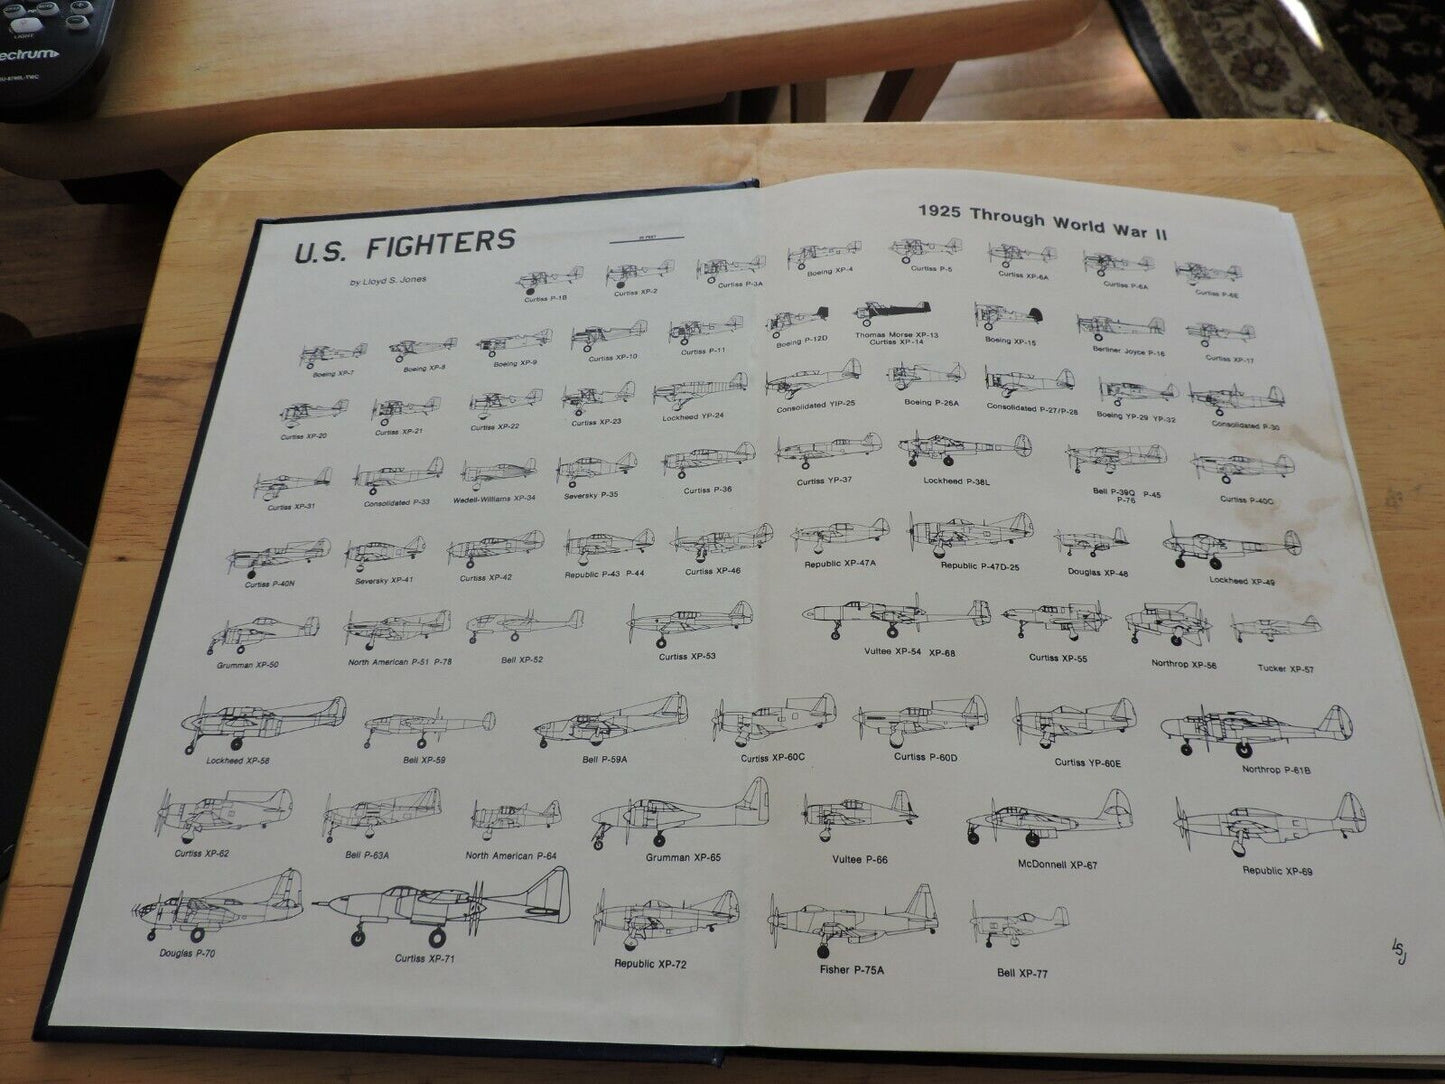 LIGHT
ectrum
U.S. FIGHTERS
1925 Through World War II
by Lloyd S. Jones
Curtiss P-1B
Curtiss XP-2
Curtiss P-3A
Boeing XP-4
Curtiss P-5
Curtiss XP-6A
Curtiss P-6A
Curtiss P-6E
Boeing XP-7
Boeing XP-8
Boeing XP-9
Curtiss XP-10
Curtiss P-11
Boeing P-12D
Thomas Morse XP-13
Curtiss XP-14
Boeing XP-15
Berliner Joyce P-16
Curtiss XP-17
Curtiss XP-20
Curtiss XP-21
Curtiss XP-22
Curtiss XP-23
Lockheed YP-24
Consolidated YIP-25
Boeing P-26A
Consolidated P-27/P-28
Boeing YP-29 YP-32
Consolidated P-30
Curtiss XP-31
Consolidated P-33
Wedell-Williams XP-34
Seversky P-35
Curtiss P-36
Curtiss YP-37
Lockheed P-38L
Bell P-39Q P-45
P-76
Curtiss P-40C
Curtiss P-40N
Seversky XP-41
Curtiss XP-42
Republic P-43 P-44
Curtiss XP-46
Republic XP-47A
Republic P-47D-25
Douglas XP-48
Lockheed XP-49
Grumman XP-50
North American P-51 P-78
Bell XP-52
Curtiss XP-53
Vultee XP-54 XP-68
Curtiss XP-55
Northrop XP-56
Tucker XP-57
Lockheed XP-58
Bell XP-59
Bell P-59A
Curtiss XP-60C
Curtiss P-60D
Curtiss YP-60E
Northrop P-61B
Curtiss XP-62
Bell P-63A
North American P-64
Grumman XP-65
Vultee P-66
McDonnell XP-67
Republic XP-69
Douglas P-70
Curtiss XP-71
Republic XP-72
Fisher P-75A
Bell XP-77
LSJ